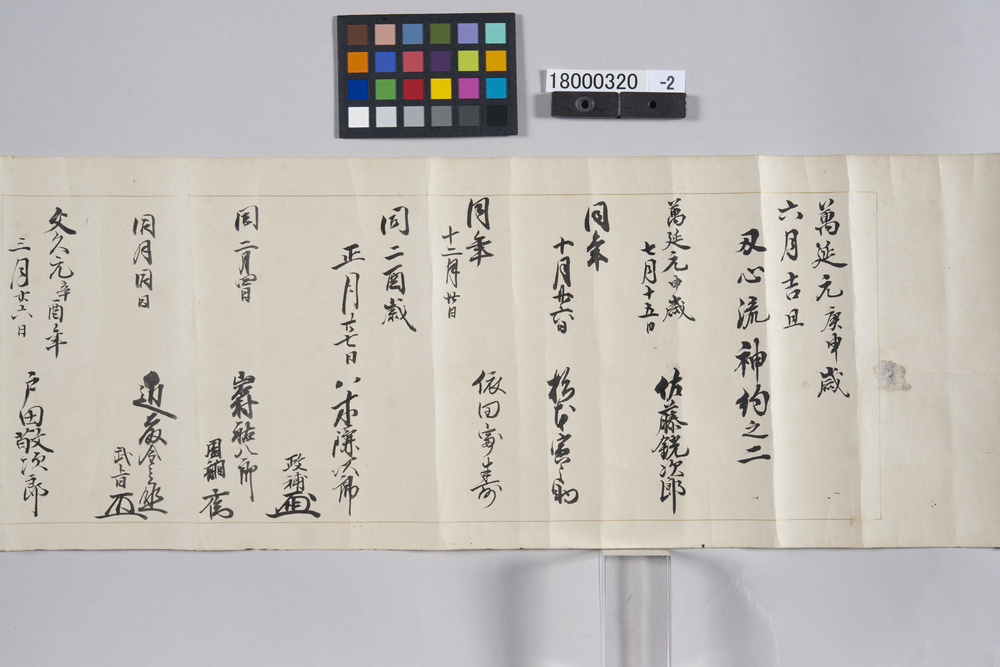 18000320 -2
萬延元庚申歳
六月吉旦
刄心流神約之二
萬延元申歳
七月十五日
佐藤銕次郎
同年
十月廿六日
松本寅之助
同年
十二月廿日
依田
同二酉歳
正月廿七日
八木
政補
同二月四日
祐八郎
同月同日
文久元辛酉年
三月廿六日
戸田敬次郎